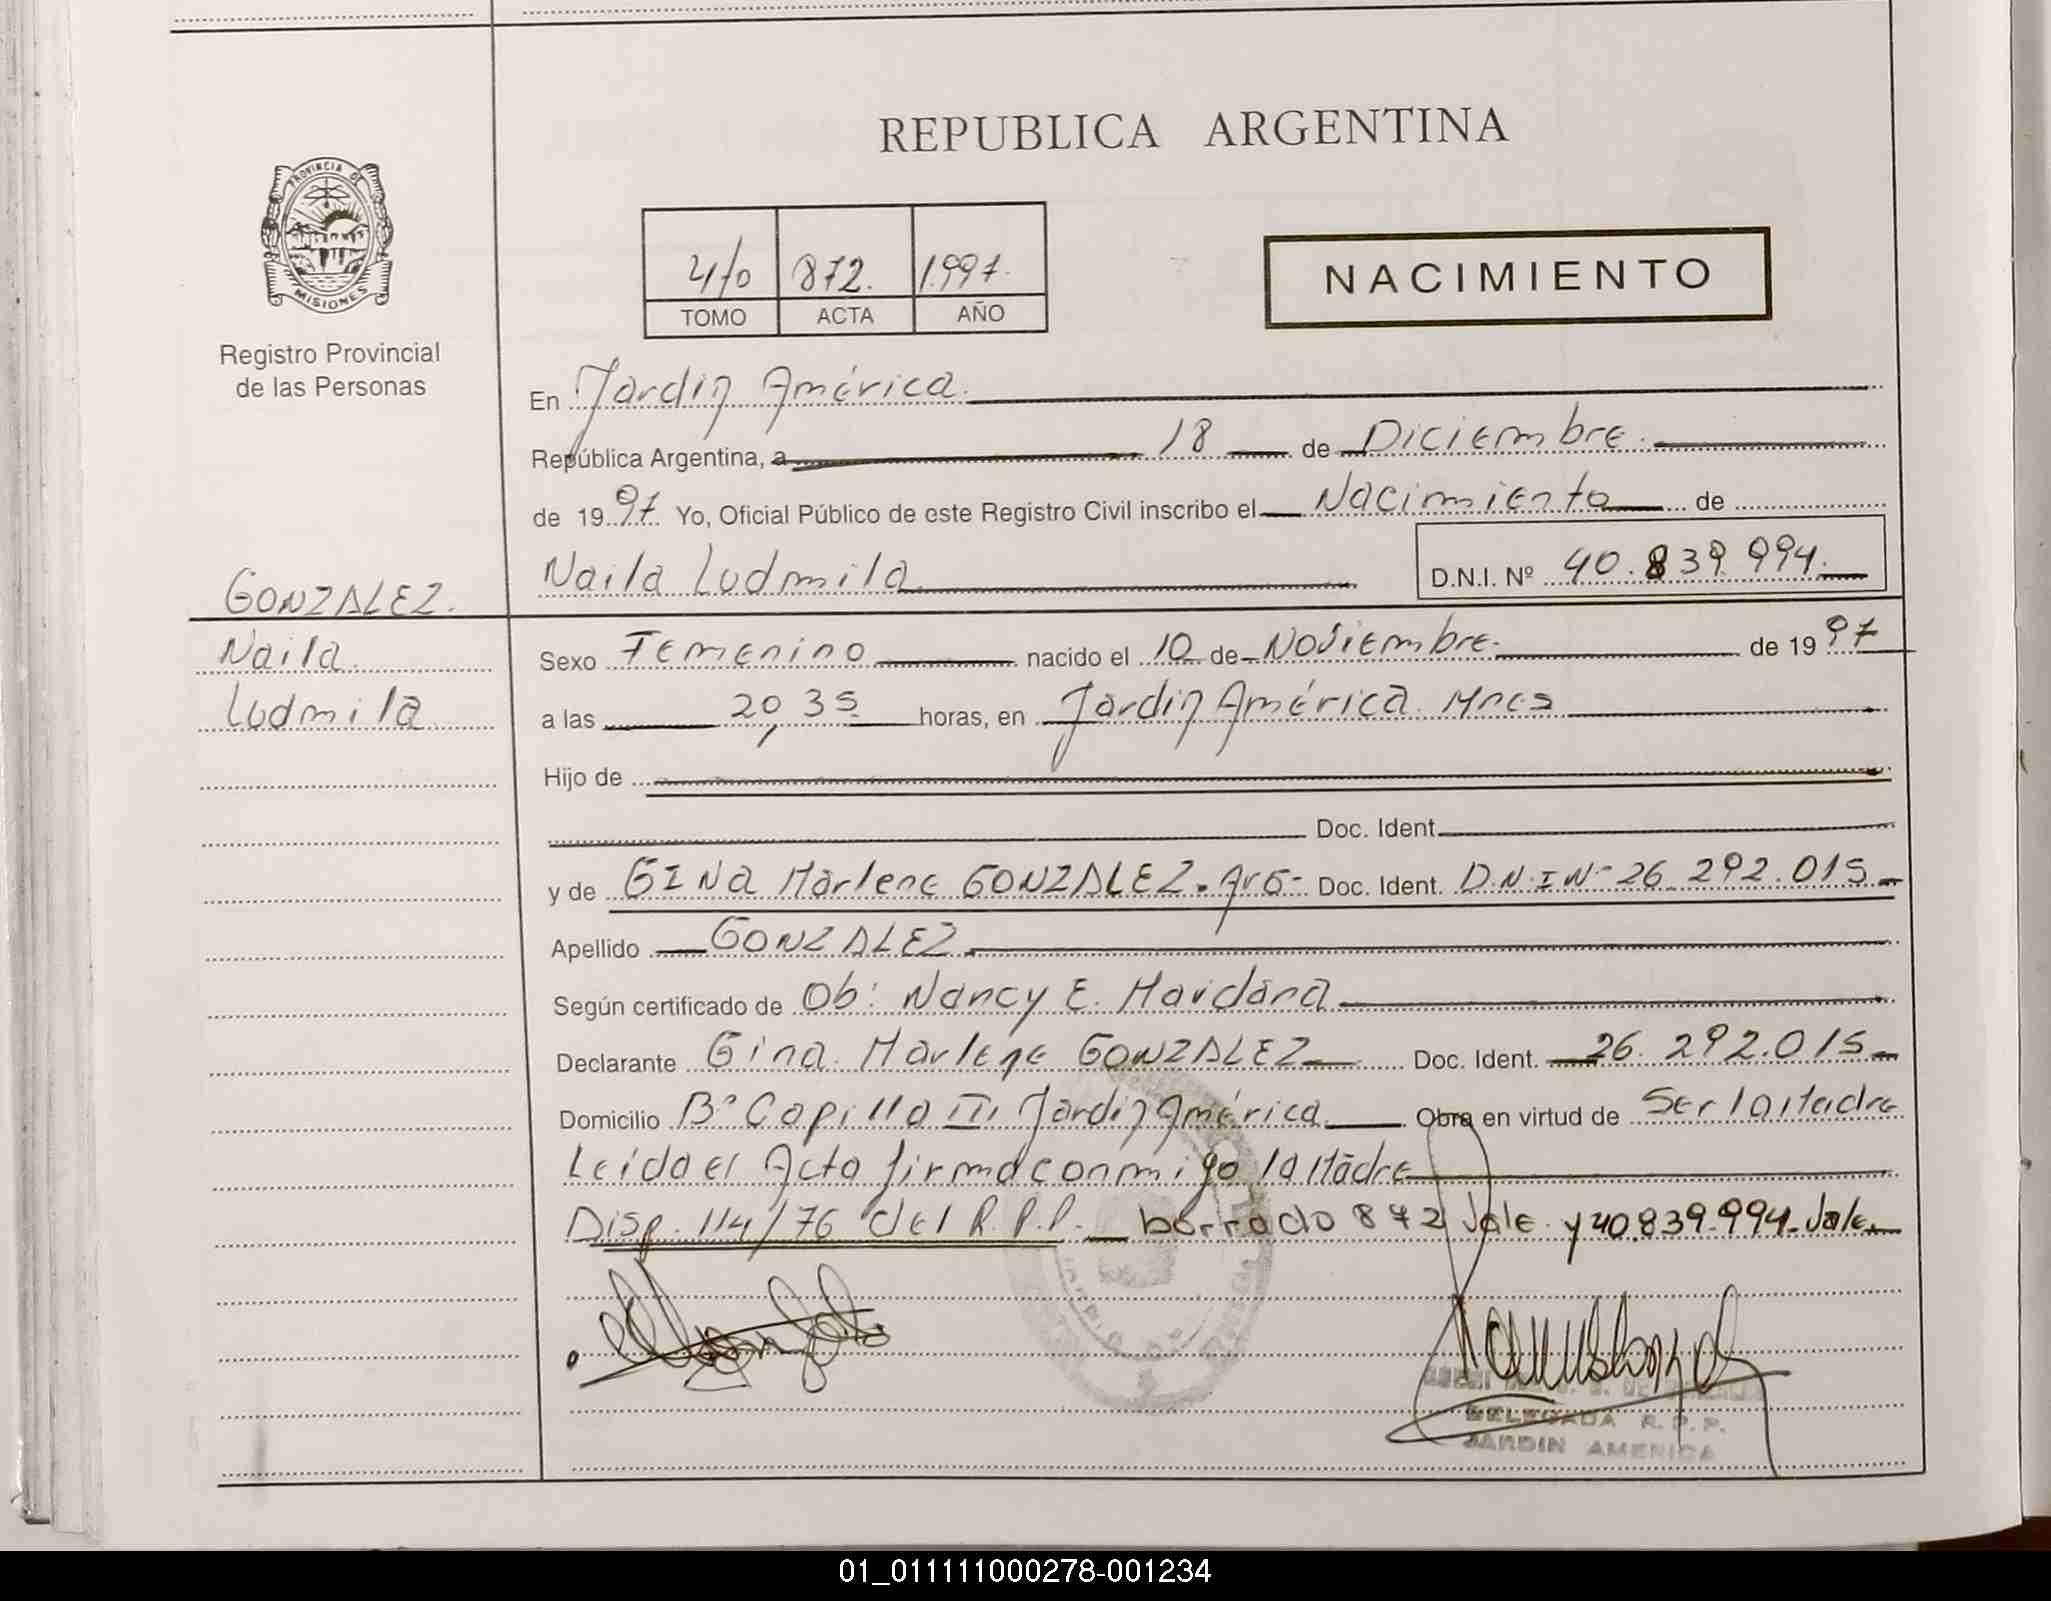 REPUBLICA ARGENTINA
PROVINCIA DE
MISIONES
Registro Provincial
de las Personas
4to 872. 1.997.
TOMO ACTA AÑO
NACIMIENTO
En Jardín América.
República Argentina, a 18 de Diciembre.
de 1997 Yo, Oficial Público de este Registro Civil inscribo el Nacimiento de
Naila Ludmila D.N.I. Nº 40.839.994.
GONZALEZ.
Naila
Ludmila
Sexo Femenino nacido el 10 de Noviembre. de 1997
a las 20,35 horas, en Jardín América. Mnes
Hijo de
Doc. Ident.
y de GINa Marlene GONZALEZ. Arg- Doc. Ident. D.N.I Nº 26.292.015
Apellido GONZALEZ
Según certificado de Ob: Nancy E. Maidana
Declarante Gina Marlene GONZALEZ Doc. Ident. 26.292.015
Domicilio Bº Capilla III Jardín América Obra en virtud de Ser la Madre
Leida el Acta firma conmigo la Madre
Disp. 114/76 del R.P.P. borrado 872 Vale. y 40.839.994 Vale
DELEGADA R.P.P.
JARDIN AMERICA
01_011111000278-001234